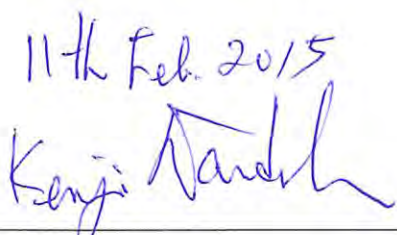 11th Feb. 2015
Kenji